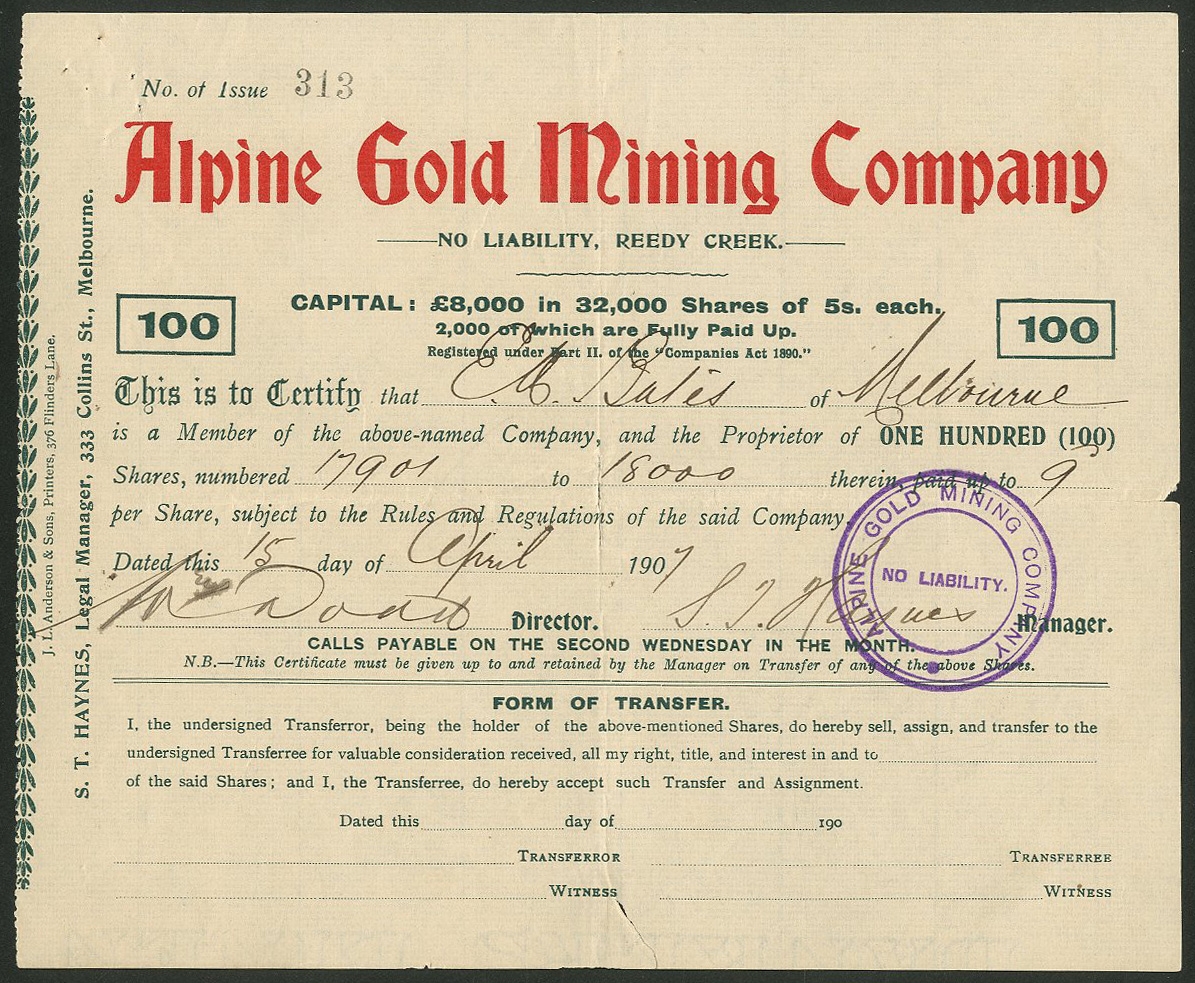 No. of Issue 313
Alpine Gold Mining Company
NO LIABILITY, REEDY CREEK.
CAPITAL: £8,000 in 32,000 Shares of 5s. each.
100
100
2,000 of which are Fully Paid Up.
Registered under Part II. of the "Companies Act 1890."
This is to Certify that Bates of Melbourne
is a Member of the above-named Company, and the Proprietor of ONE HUNDRED (100)
Shares, numbered 17901 to 18000 therein, paid up to 9
per Share, subject to the Rules and Regulations of the said Company.
Dated this 15 day of April 1907
Director. S. T. Haynes Manager.
CALLS PAYABLE ON THE SECOND WEDNESDAY IN THE MONTH.
N.B.—This Certificate must be given up to and retained by the Manager on Transfer of any of the above Shares.
ALPINE GOLD MINING COMPANY
NO LIABILITY.
FORM OF TRANSFER.
I, the undersigned Transferror, being the holder of the above-mentioned Shares, do hereby sell, assign, and transfer to the
undersigned Transferree for valuable consideration received, all my right, title, and interest in and to
of the said Shares; and I, the Transferree, do hereby accept such Transfer and Assignment.
Dated this day of 190
TRANSFERROR TRANSFERREE
WITNESS WITNESS
S. T. HAYNES, Legal Manager, 333 Collins St., Melbourne.
J. L. Anderson & Sons, Printers, 376 Flinders Lane.